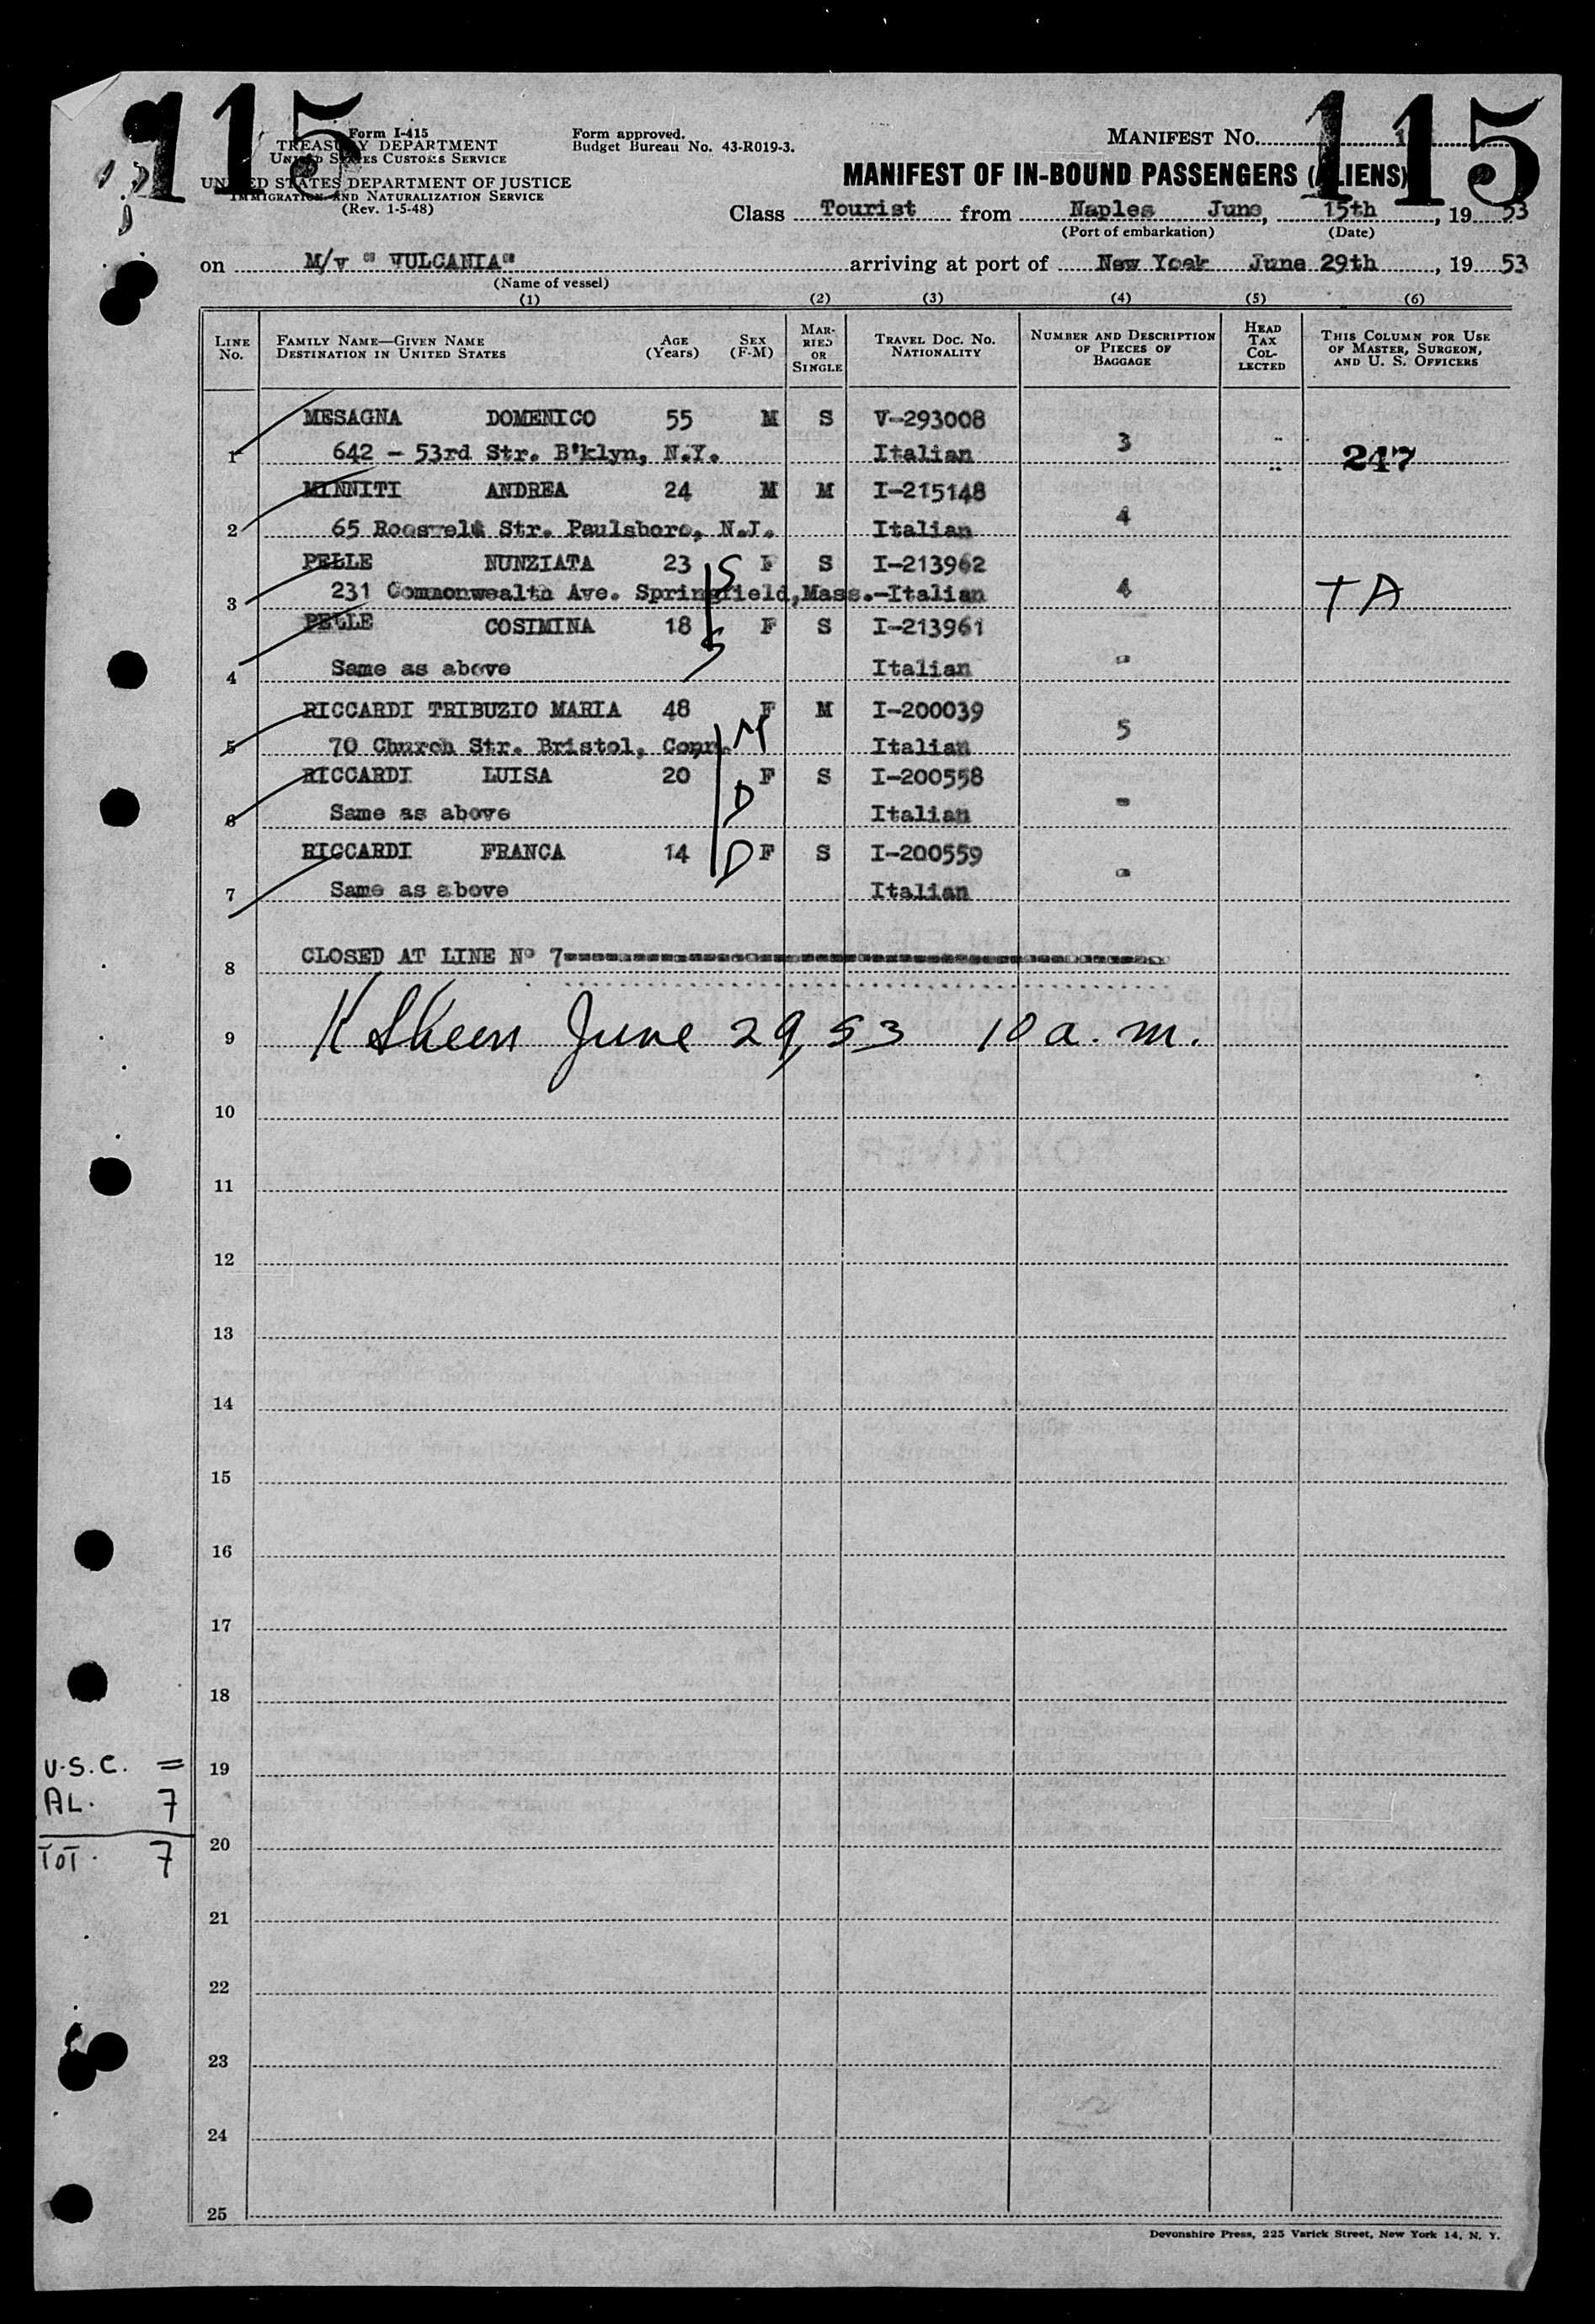 115 115
Form I-415
TREASURY DEPARTMENT
UNITED STATES CUSTOMS SERVICE
UNITED STATES DEPARTMENT OF JUSTICE
IMMIGRATION AND NATURALIZATION SERVICE
(Rev. 1-5-48)
Form approved.
Budget Bureau No. 43-R019-3.
MANIFEST No.
MANIFEST OF IN-BOUND PASSENGERS (ALIENS)
Class Tourist from Naples June, 15th, 19 53
(Port of embarkation) (Date)
on M/v " VULCANIA" arriving at port of New York June 29th, 19 53
(Name of vessel)
(1) (2) (3) (4) (5) (6)
LINE No. FAMILY NAME—GIVEN NAME DESTINATION IN UNITED STATES AGE (Years) SEX (F-M) MARRIED OR SINGLE TRAVEL DOC. NO. NATIONALITY NUMBER AND DESCRIPTION OF PIECES OF BAGGAGE HEAD TAX COLLECTED THIS COLUMN FOR USE OF MASTER, SURGEON, AND U. S. OFFICERS
MESAGNA DOMENICO 55 M S V-293008
1 642 - 53rd Str. B'klyn, N.Y. Italian 3 247
MINNITI ANDREA 24 M M I-215148
2 65 Roosvelt Str. Paulsboro, N.J. Italian 4
PELLE NUNZIATA 23 S F S I-213962
3 231 Commonwealth Ave. Springfield,Mass.-Italian 4 TA
PELLE COSIMINA 18 S F S I-213961
4 Same as above Italian "
RICCARDI TRIBUZIO MARIA 48 F M I-200039
5 70 Church Str. Bristol, Conn. M Italian 5
RICCARDI LUISA 20 F S I-200558
6 Same as above D Italian "
RICCARDI FRANCA 14 D F S I-200559
7 Same as above Italian "
8 CLOSED AT LINE No 7
9 June 29, 53 10 a.m.
10
11
12
13
14
15
16
17
18
19
20
21
22
23
24
25
U.S.C. =
AL. 7
TOT. 7
Devonshire Press, 225 Varick Street, New York 14, N. Y.